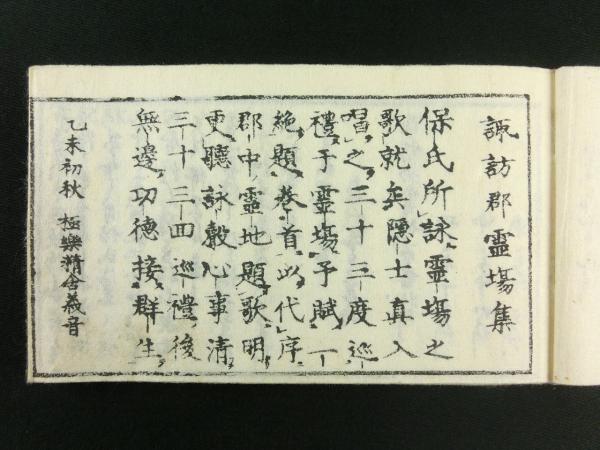 諏訪郡靈場集
保氏所詠靈場之
歌就矣隠士真入
唱之三十三度巡
禮于靈場予賦一
絶題巻首以代序
郡中靈地題歌明
更聽詠聲心事清
三十三回巡禮後
無邊功德接群生
乙未初秋 極樂精舍義音